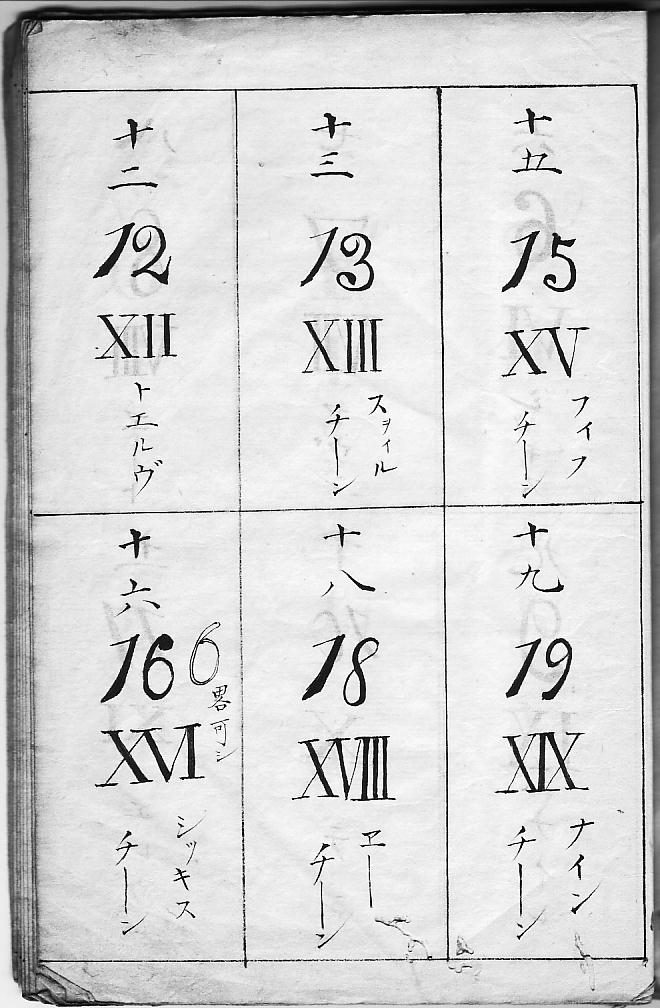 十五
15
XV
フイフ
チーン
十三
13
XIII
スヲィル
チーン
十二
12
XII
トエルヴ
十九
19
XIX
ナイン
チーン
十八
18
XVIII
ヱー
チーン
十六
16
6
畧可シ
XVI
シッキス
チーン